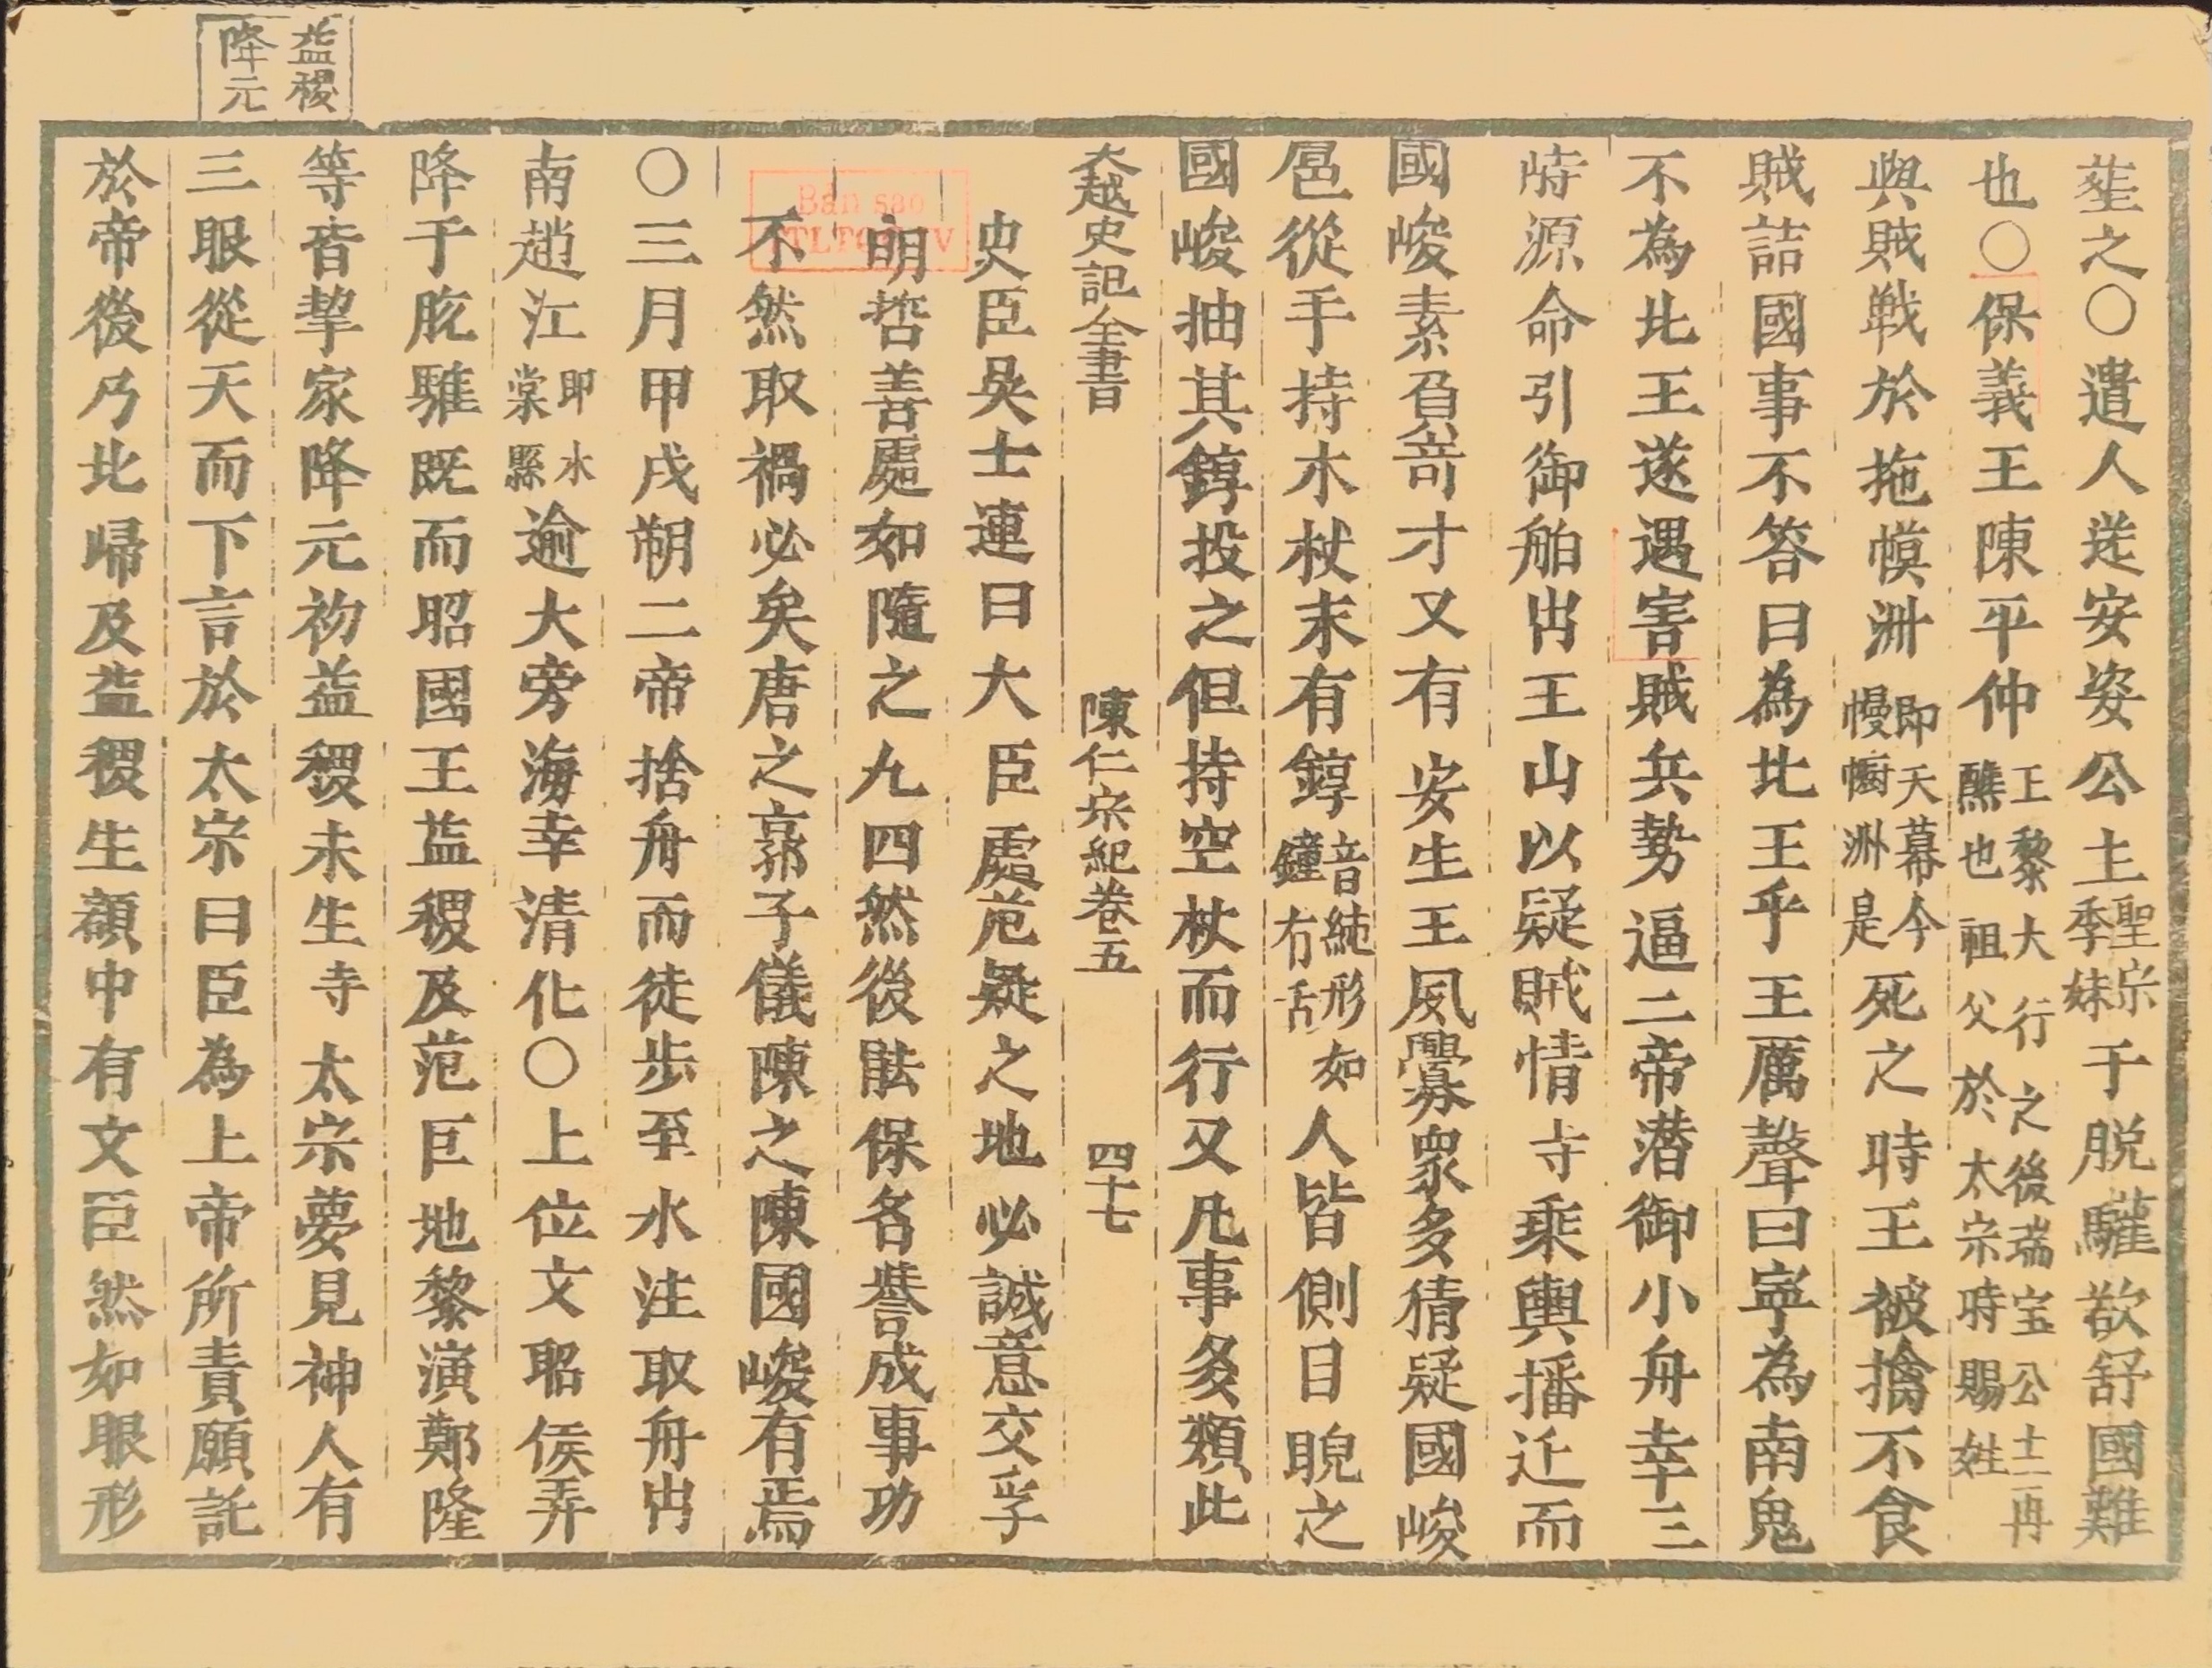 塟之○遣人送安姿公主聖宗季妹于脱驩欲舒國難
也○保義王陳平仲王黎大行之後瑞宝公主再醮也祖父於太宗時賜姓
與賊戦於拖幙洲即天幕今幔幮洲是死之時王被擒不食
賊詰國事不答曰為北王乎王厲聲曰寧為南鬼
不為北王遂遇害賊兵勢逼二帝潜御小舟幸三
峙源命引御舶出王山以疑賊情寺乗輿播迁而
國峻素負竒才又有安生王夙釁衆多猜疑國峻
扈從手持木杖末有錞音純形如鐘有舌人皆側目睨之
國峻抽其錞投之但持空杖而行又凡事多類此
大越史記全書 陳仁宗紀卷五 四十七
史臣吳士連曰大臣處危疑之地必誠意交孚
明哲善處如隨之九四然後能保名譽成事功
不然取禍必矣唐之郭子儀陳之陳國峻有焉
○三月甲戌朔二帝捨舟而徒步至水注取舟出
南趙江即水棠縣逾大旁海幸清化○上位文昭侯弄
降于脱驩既而昭國王益稷及范巨地黎演鄭隆
等皆挈家降元初益稷未生寺太宗夢見神人有
三眼從天而下言於太宗曰臣為上帝所責願託
於帝後乃北歸及益稷生額中有文臣然如眼形
益稷降元
Bản sao
TLTQVV